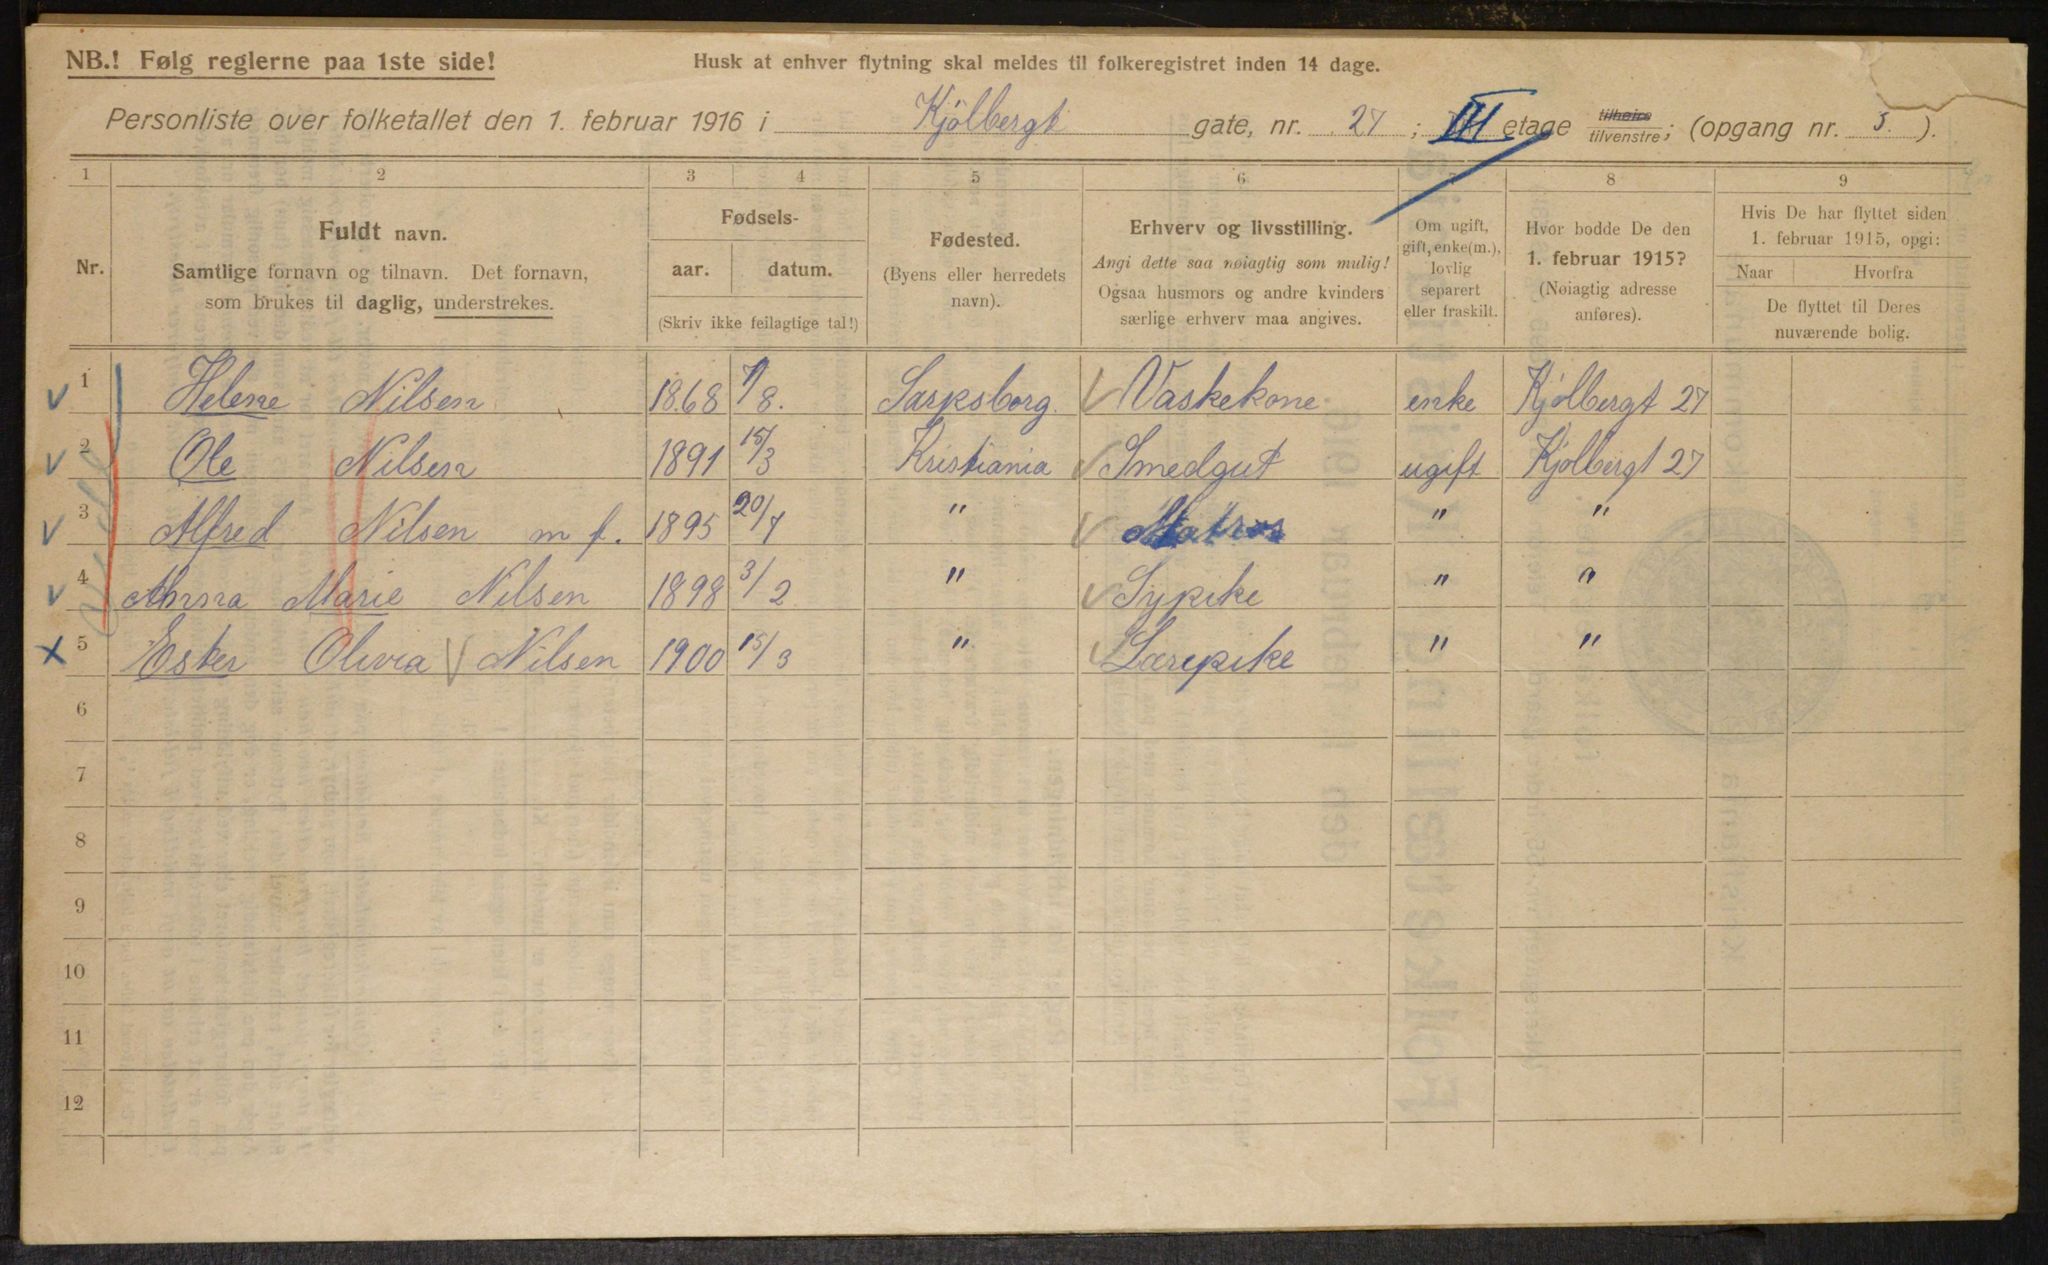 NB.! Følg reglerne paa 1ste side!
Husk at enhver flytning skal meldes til folkeregistret inden 14 dage.
Personliste over folketallet den 1. februar 1916 i Kjølbergt gate, nr. 27; III etage tilhøire tilvenstre; (opgang nr. 3.).
1 2 3 4 5 6 8 9
Nr.
Fuldt navn.
Samtlige fornavn og tilnavn. Det fornavn,
som brukes til daglig, understrekes.
Fødsels-
aar. datum.
(Skriv ikke feilagtige tal!)
Fødested.
(Byens eller herredets
navn).
Erhverv og livsstilling.
Angi dette saa nøiagtig som mulig!
Ogsaa husmors og andre kvinders
særlige erhverv maa angives.
Om ugift,
gift, enke(m.),
lovlig
separert
eller fraskilt.
Hvor bodde De den
1. februar 1915?
(Nøiagtig adresse
anføres).
Hvis De har flyttet siden
1. februar 1915, opgi:
Naar Hvorfra
De flyttet til Deres
nuværende bolig.
1 Helene Nilsen 1868 7/8. Sarpsborg. Vaskekone. enke Kjølbergt 27
2 Ole Nilsen 1891 15/3 Kristiania Smedgut ugift Kjølbergt 27
3 Alfred Nilsen m f. 1895 20/7 " Matros " "
4 Anna Marie Nilsen 1898 3/2 " Sypike " "
5 Ester Olivia Nilsen 1900 15/3 " Lærepike " "
6
7
8
9
10
11
12